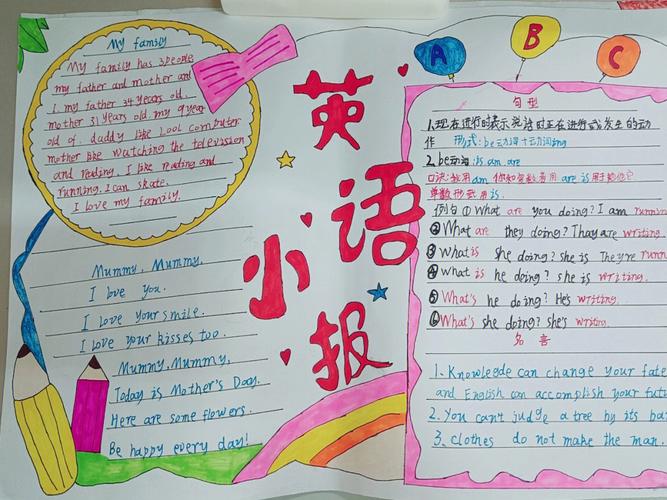 My family
My family has 3people
my father and mother and
I. my father 34 years old.
mother 31 years old. my 9year
old of. daddy like Look computer
mother like watching the television
and reading. I like reading and
running. I can skate.
I love my family.
Mummy, Mummy,
I love you.
I love your smile.
I love your kisses too.
Mummy, Mummy,
Today is Mother's Day.
Here are some flowers.
Be happy every day!
英
语
小
报
A
B
C
句型
1.现在进行时表示说话时正在进行或发生的动
作 形式:be动词+动词ing
2.be动词:is.am.are
口诀:我用am 你和复数看用are is用于他它
单数形式用is.
例句①What are you doing? I am runnin
②What are they doing? Thay are writing.
③What is she doing? she is They're runn
④What is he doing? she is writing.
⑤What's he doing? He's writing.
⑥What's she doing? she's writing.
名言
1. Knowlegde can change your fate
and English can accomplish your futu
2. You can't judge a tree by its ba
3. clothes do not make the man.